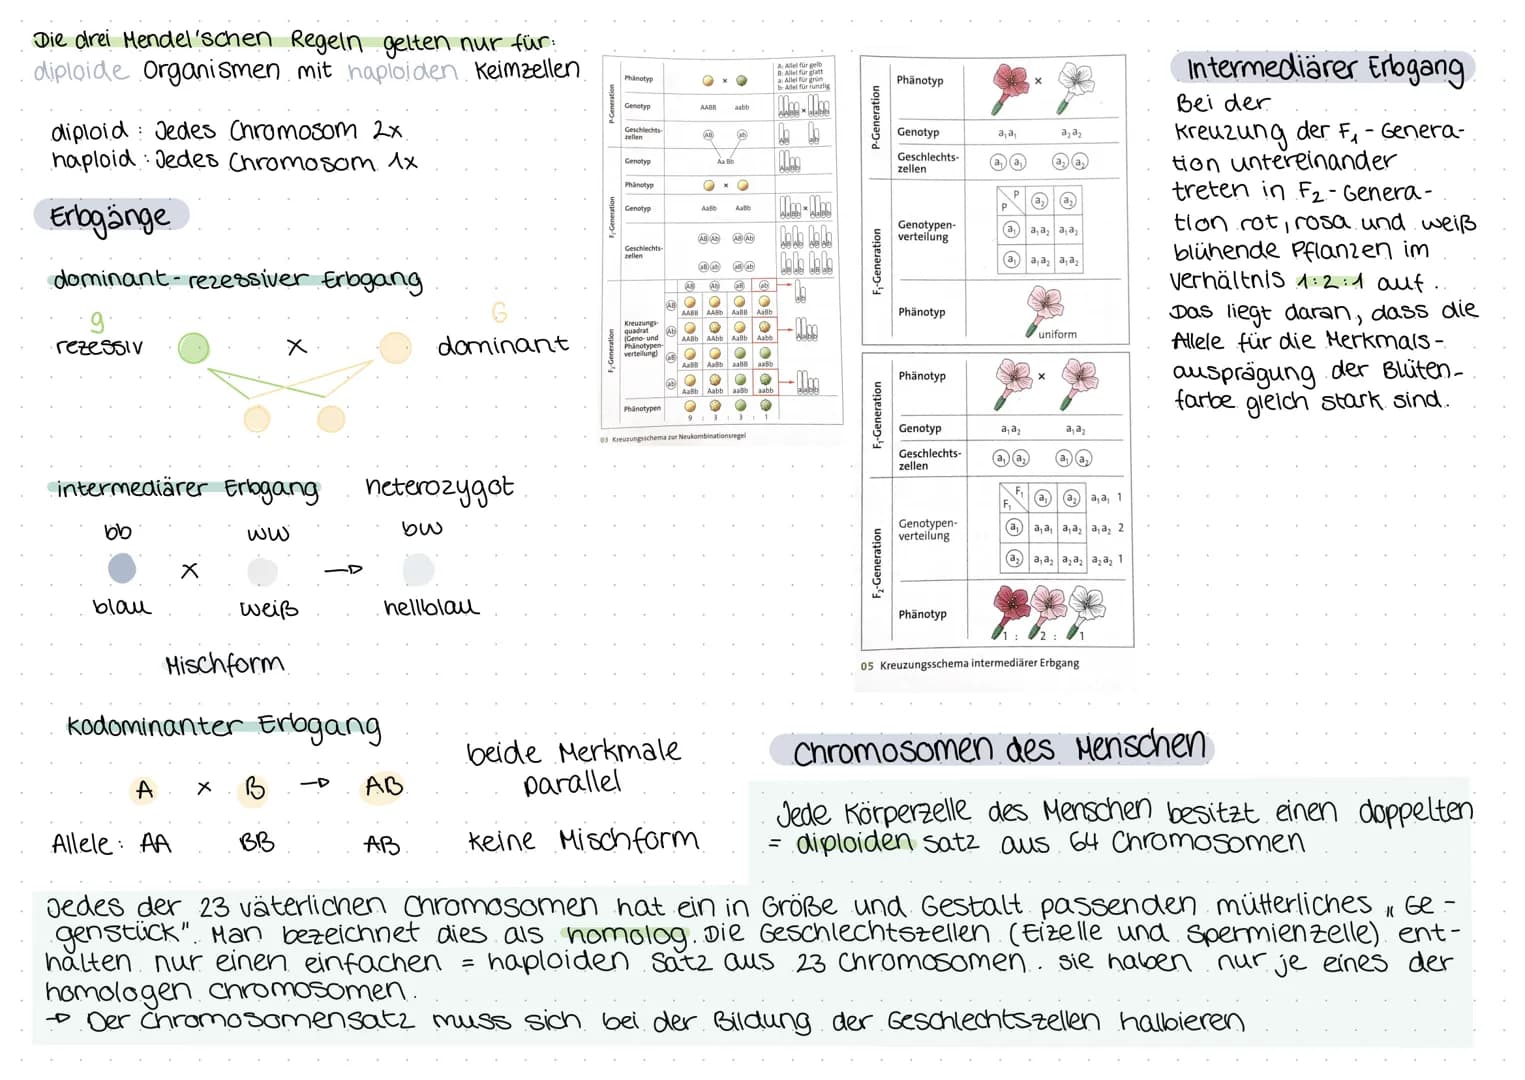 Die drei Mendel'schen Regeln gelten nur für:
diploide Organismen mit haploiden Keimzellen
diploid : Jedes Chromosom 2x
haploid : Jedes Chromosom 1x
Erbgänge
dominant-rezessiver Erbgang
g
G
rezessiv
x
dominant
intermediärer Erbgang
heterozygot
bb
ww
bw
x
blau
weiß
hellblau
Mischform
kodominanter Erbgang
A x B → AB
beide Merkmale
parallel
Allele: AA BB AB
keine Mischform
P-Generation
Phänotyp
x
A: Allel für gelb
B: Allel für glatt
a: Allel für grün
b: Allel für runzlig
Genotyp
AABB
aabb
AABB x aabb
Geschlechts-
zellen
AB
ab
AB
ab
Genotyp
Aa Bb
AaBb
F₁-Generation
Phänotyp
x
Genotyp
AaBb
AaBb
AaBb x AaBb
Geschlechts-
zellen
AB Ab AB Ab
AB Ab AB Ab
aB ab aB ab
aB ab aB ab
F₂-Generation
Kreuzungs-
quadrat
(Geno- und
Phänotypen-
verteilung)
AB Ab aB ab
ab
AB
AABB AABb AaBB AaBb
Ab
AABb AAbb AaBb Aabb
Aabb
aB
AaBB AaBb aaBB aaBb
ab
AaBb Aabb aaBb aabb
aabb
Phänotypen
9 : 3 : 3 : 1
03 Kreuzungsschema zur Neukombinationsregel
P-Generation
Phänotyp
x
Genotyp
a₁a₁
a₂a₂
Geschlechts-
zellen
a₁ a₁
a₂ a₂
F₁-Generation
Genotypen-
verteilung
P
P
a₂ a₂
a₁ a₁a₂ a₁a₂
a₁ a₁a₂ a₁a₂
Phänotyp
uniform
F₁-Generation
Phänotyp
x
Genotyp
a₁a₂
a₁a₂
Geschlechts-
zellen
a₁ a₂
a₁ a₂
F₂-Generation
Genotypen-
verteilung
F₁
F₁
a₁ a₂ a₁a₁ 1
a₁ a₁a₁ a₁a₂ a₁a₂ 2
a₂ a₁a₂ a₂a₂ a₂a₂ 1
Phänotyp
1 : 2 : 1
05 Kreuzungsschema intermediärer Erbgang
Intermediärer Erbgang
Bei der
Kreuzung der F₁-Genera-
tion untereinander
treten in F₂-Genera-
tion rot, rosa und weiß
blühende Pflanzen im
Verhältnis 1:2:1 auf.
Das liegt daran, dass die
Allele für die Merkmals-
ausprägung der Blüten-
farbe gleich stark sind.
Chromosomen des Menschen
Jede Körperzelle des Menschen besitzt einen doppelten
= diploiden Satz aus 64 Chromosomen
Jedes der 23 väterlichen Chromosomen hat ein in Größe und Gestalt passenden mütterliches „Ge-
genstück". Man bezeichnet dies als homolog. Die Geschlechtszellen (Eizelle und Spermienzelle) ent-
halten nur einen einfachen = haploiden Satz aus 23 Chromosomen. Sie haben nur je eines der
homologen Chromosomen.
→ Der Chromosomensatz muss sich bei der Bildung der Geschlechtszellen halbieren